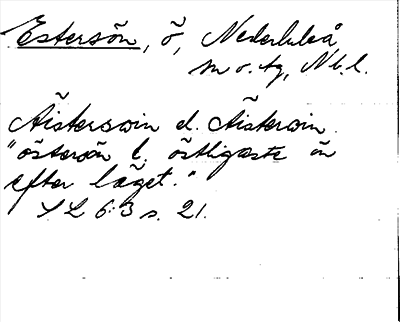 Estersön, ö, Nederluleå
sn o. tg, Nb. l.
Äisterswin el. Äistersvin.
"östersön l. östligaste ön
efter läget."
SL 6:3 s. 21.